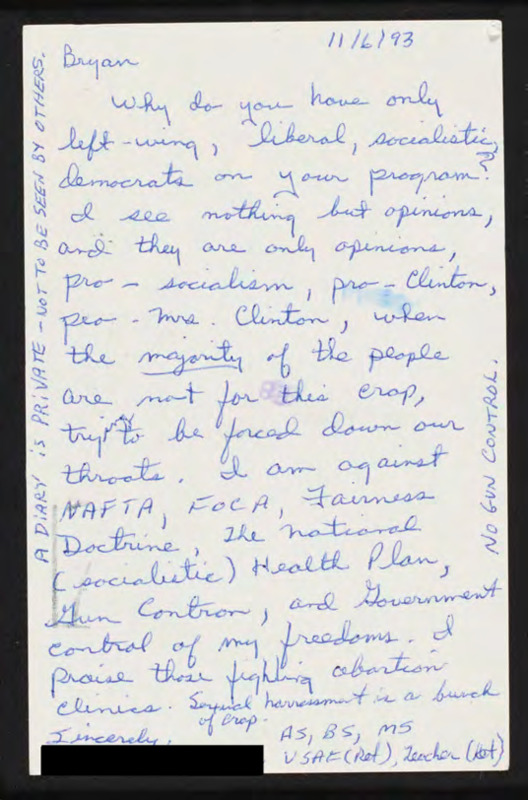 11/6/93
Bryan
Why do you have only
left-wing, liberal, socialistic,
democrats on your program?
I see nothing but opinions,
and they are only opinions,
pro - socialism, pro - Clinton,
pro - Mrs. Clinton, when
the majority of the people
are not for this crap,
trying to be forced down our
throats. I am against
NAFTA, FOCA, Fairness
Doctrine, The national
(socialistic) Health Plan,
Gun Contron, and Government
control of my freedoms. I
praise those fighting abortion
clinics. Sexual harrassment is a bunch
of crap.
Sincerely,
AS, BS, MS
USAF (Ret), Teacher (Ret)
A DIARY IS PRIVATE - NOT TO BE SEEN BY OTHERS.
NO GUN CONTROL.